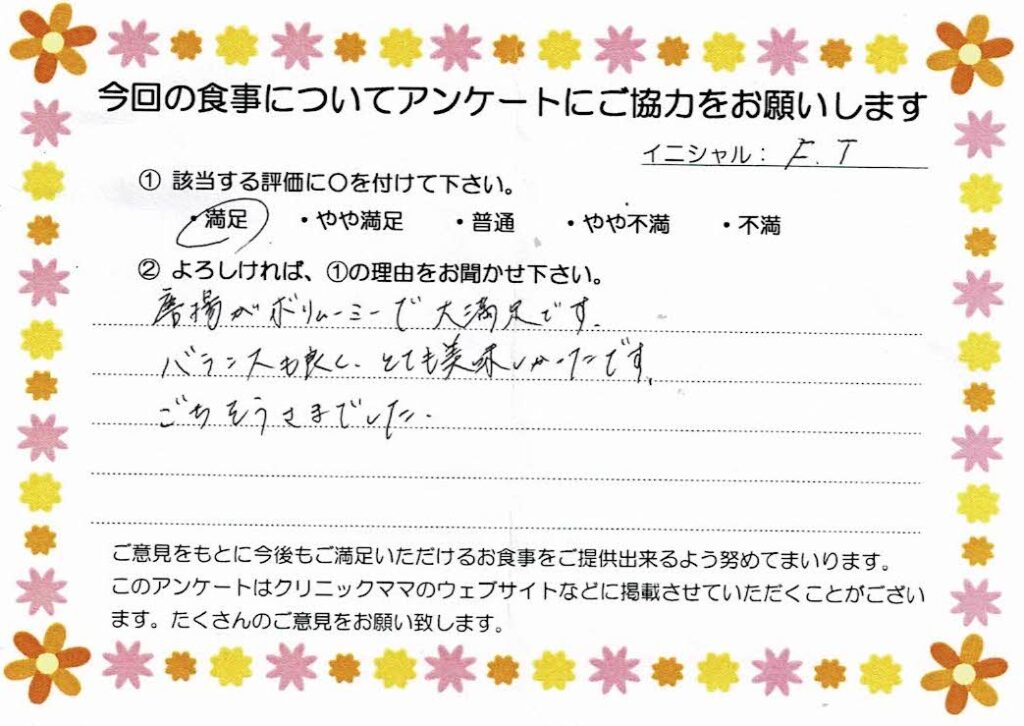 今回の食事についてアンケートにご協力をお願いします
イニシャル： F.T
① 該当する評価に〇を付けて下さい。
・満足 ・やや満足 ・普通 ・やや不満 ・不満
② よろしければ、①の理由をお聞かせ下さい。
唐揚がボリューミーで大満足です。
バランスも良く、とても美味しかったです。
ごちそうさまでした。
ご意見をもとに今後もご満足いただけるお食事をご提供出来るよう努めてまいります。
このアンケートはクリニックママのウェブサイトなどに掲載させていただくことがござい
ます。たくさんのご意見をお願い致します。